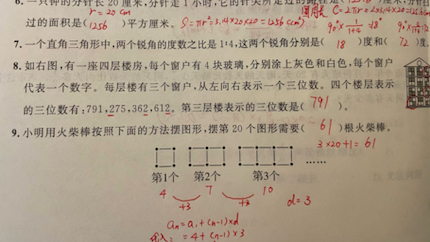 6. 一只钟的分针长 20 厘米，分针走 1 小时，它的针尖所走过的路程是
r = 20 cm
过的面积是（1256）平方厘米。 S = πr² = 3.14×20×20 = 1256 (cm²)
7. 一个直角三角形中，两个锐角的度数之比是 1:4，这两个锐角分别是（18）度和（72）度。
8. 如右图，有一座四层楼房，每个窗户有 4 块玻璃，分别涂上灰色和白色，每个窗户
代表一个数字。每层楼有三个窗户，从左向右表示一个三位数。四个楼层表示
的三位数有：791，275，362，612。第三层楼表示的三位数是（791）。
9. 小明用火柴棒按照下面的方法摆图形，摆第 20 个图形需要（61）根火柴棒。
3×20+1=61
第1个 第2个 第3个 ……
4 7 10
+3 +3 d=3
aₙ = a₁ + (n-1)×d
= 4 + (n-1)×3